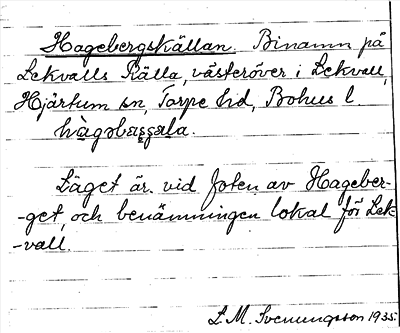 Hagebergskällan. Binamn på
Lekvalls Källa, västeröver i Lekvall,
Hjärtum sn, Torpe hd, Bohus l
hàgəbærsçala.
Läget är vid foten av Hageber-
-get, och benämningen lokal för Lek-
-vall.
L. M. Svenungsson 1935.